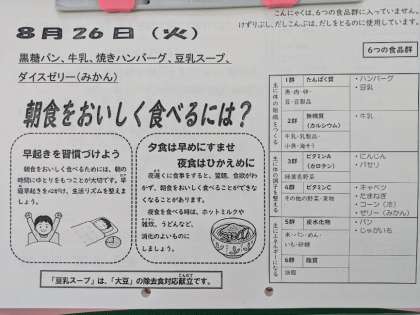 こんにゃくは、6つの食品群に入っていません。
けずりぶし、だしこんぶは、だしをとるのに使用しています。
8月26日(火)
黒糖パン、牛乳、焼きハンバーグ、豆乳スープ、
ダイスゼリー(みかん)
朝食をおいしく食べるには?
早起きを習慣づけよう
朝食をおいしく食べるためには、朝の
時間にゆとりをもつことが大切です。早
寝早起きを心がけ、生活リズムを整えま
しょう。
夕食は早めにすませ
夜食はひかえめに
夜遅くに食事をすると、翌朝、食欲がわ
かず、朝食をおいしく食べることができなく
なることがあります。
夜食を食べる時は、ホットミルクや
雑炊、うどんなど、
消化のよいものに
しましょう。
「豆乳スープ」は、「大豆」の除去食対応献立です。
6つの食品群
主に体の組織をつくる
1群 たんぱく質
魚・肉・卵・
豆・豆製品
・ハンバーグ
・豆乳
2群 無機質
(カルシウム)
牛乳・乳製品・
小魚・海そう
・牛乳
主に体の調子を整える
3群 ビタミンA
(カロテン)
緑黄色野菜
・にんじん
・パセリ
4群 ビタミンC
その他の野菜・果物
・キャベツ
・たまねぎ
・コーン(冷)
・ゼリー(みかん)
主にエネルギーになる
5群 炭水化物
米・パン・めん・
いも・砂糖
・パン
・じゃがいも
6群 脂質
油脂